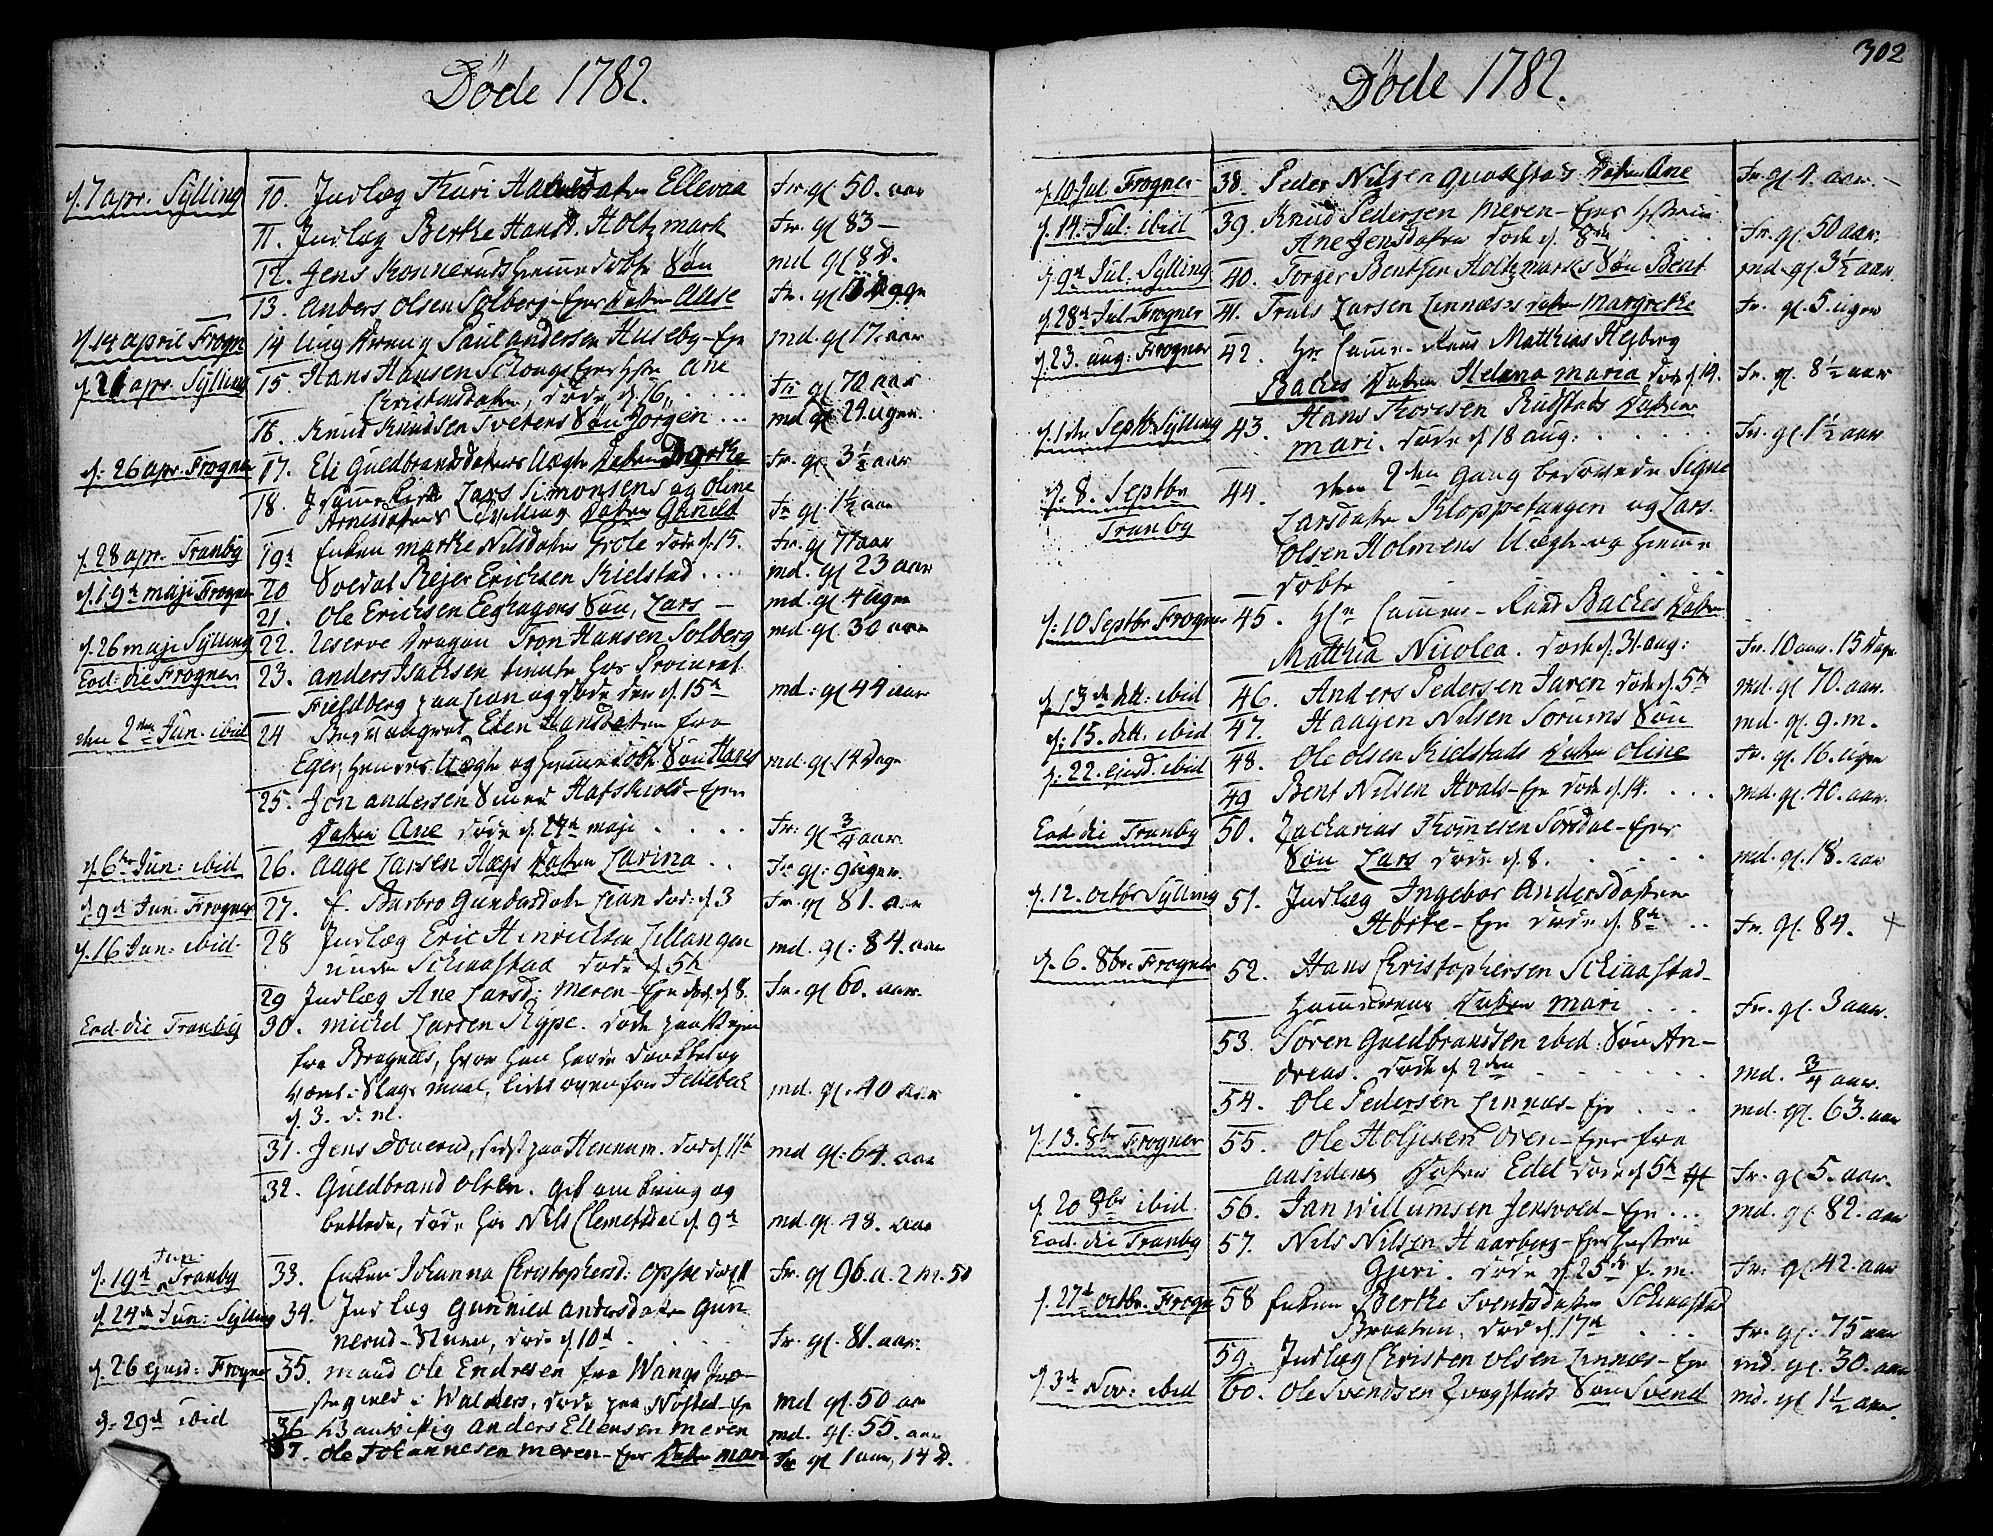 302
Døde 1782.
d. 7 apr. Sylling 10. Indlæg Thuri Ellevaa Fr. gl 50. aar
11. Indlæg Berthe Hansd. Holtzmark Fr. gl 83 —
12. Jens Konnerud hjemmedøbte Søn md gl 8 D.
13. Anders Olsen Solberg-Eyes Datter Aase Fr. gl Dage
d. 14 april Frogn 14 Ung Paul Andersen Huseby-Eye md. gl 17. aar
d. 21 apr. Sylling 15. Hans Hansen Schougs Eyes Ane Fr gl 70 aar
Christensdatter, døde d. 16
16. Knud Knudsen Tvetens Søn Jørgen md gl 29 ugen
d. 26 apr. Frogner 17. Eli Guldbrandsdatters Uægte Datter Fr. gl 3 1/2 aar
18. Lars Simonsens og Oline Fr gl 1 1/2 aar
Arnesdatters Datter Gunild
d. 28 apr. Tranby 19. Enken Marthe Nilsdatter døde d. 15. Fr. gl 71 aar
d. 19de maji Frogner 20 Soldat Rejer Erichsen Kielstad md. gl 23 aar
21. Ole Erichsen Eeghagens Søn, Lars md. gl 4 ugen
d. 26 maji Sylling 22. Reserve Dragon Tron Hansen Solberg md. gl. 30 aar
Eod: die Frogner 23. Anders Isachsen tiente hos Procurat.
Fieldberg paa Lian og døde den d. 15de md: gl 44 aar
den 2den Jun. ibid 24 Besvangret Elen Hansdatter fra
Eger, hendes Uægte og hjemmedøbte Søn Hans md. gl 14 Dage
25. Jon Andersen Hafskiolds-Eyes
Datter Ane døde d. 29de maji Fr: gl 3/4 aar
d. 6te Jun: ibid 26. Aage Larsen Hægs Datter Zarina Fr gl: 9 ugen
d. 9de Jun: Frogner 27. f. Barbro Gundersdatter Lian død: d. 3 Fr. gl 81. aar
d. 16 Jun: ibid. 28 Indlæg Eric Hinrichsen Lillangen md. gl: 84. aar
under Schiaastad døde d. 5te
29 Indlæg Ane Larsd: Meren-Eye død. d. 8. Fr. gl 60. aar.
Eod. die Tranby 30. Michel Larsen Skype. døde paa Vejen
fra Bragnæs, hvor han havde drukket og
været i Slagsmaal, lidet ovenfor md. gl. 40 aar
d. 3. d. m.
31. Jens Donerud, sidst paa Hennum. død d. 11te md gl: 64. aar
32. Guldbrand Olsen. Gik omkring og
betlede, døde hos Nils d. 9de md. gl. 48. aar
d. 19de Jun: Tranby 33. Enken Johanna Christophersd: Opsee død d. 11 Fr. gl 96 a. 2 m. 5 D
d. 24de Jun: Sylling 34. Indlæg Gunnild Andersdatter Gun-
nerud-Stuen, døde d. 10de Fr. gl. 81. aar.
d. 26 ejusd: Frogner 35. mand Ole Endresen fra Wangs Præ-
stegield i Walders, døde paa Nøsted-Eye md gl. 50 aar
d. 29de ibid 36 Anders Ellensen Meren md. gl: 55. aar
37. Ole Johannesen Meren-Eyes Datter Mari Fr gl 1 aar, 14 D.
Døde 1782.
d. 10 Jul. Frogner 38. Peder Nilsen Qvakstads Datter Ane Fr. gl 4. aar.
d. 14. Jul: ibid 39. Knud Pedersen Meren-Eyes
Ane Jensdatter døde d. 8de Fr. gl. 50 aar.
d. 9de Jul. Sylling 40. Torger Bentsen Holtzmarks Søn Bent md. gl. 3 1/2 aar
d. 28de Jul. Frogner 41. Truls Larsen Linnæsses Datter Margrethe Fr. gl. 5. ugen
d. 23. aug: Frogner 42. Hr Matthias Hejberg
Backes Datter Helena Maria død d. 19. Fr. gl. 8 1/2 aar
d. 1ste Septb. Sylling 43. Hans Thoresen Rustads Datter
Mari. døde d. 18 aug: Fr. gl. 1 1/2 aar
d. 8. Septbr Tranby 44. den 2den gang besovede Signe
Larsdatter Kloppetangen og Lars
Olsen Holmens Uægte og hjemme
døbte
d. 10 Septbr Frogner 45. Hr Backes Datter
Matthia Nicolea. døde d. 31 aug: Fr. 10 aar. 15 Dage
d. 13de dtt. ibid 46. Anders Pedersen Jaren døde d. 5te md. gl 70. aar.
d. 15. dtt. ibid 47. Haagen Nilsen Sørums Søn md. gl. 9. m.
d. 22. ejusd. ibid 48. Ole Olsen Kielstads Datter Oline Fr. gl. 16. ugen
49 Bent Nilsen Hvals-Eye døde d. 14. md. gl. 40. aar.
Eod. die Tranby 50. Zacharias Thomesen Sørsdal-Eyes
Søn Lars døde d. 8. md. gl. 18. aar
d. 12. octbr Sylling 51. Indlæg Ingebor Andersdatter
Hørte-Eye døde d. 8de Fr. gl. 84. +
d. 6. 8br. Frogner 52. Hans Christophersen Schiaastad-
Hammerens Datter Mari Fr. gl. 3 aar.
53. Søren Guldbrandsen ibid: Søn An-
dreas. døde d. 2den md. 3/4 aar.
54. Ole Pedersen Linnæs-Eye md. gl. 63. aar
d. 13. 8br Frogner 55. Ole Holjesen Oren-Eyes fra
Aasidens Datter Edel døde d. 5te Fr. gl 5. aar.
d. 20 8br ibid. 56. Jan Willumsen Jensvold-Eye md. gl 82. aar
Eod. die Tranby 57. Nils Nilsen Haarberg-Eyes Hustru
Gjøri. døde d. 25de f. m. Fr: gl 42. aar
d. 27de octbr. Frogn 58 Enken Berthe Svendsdatter Schiaastad
Braaten. død d. 17de Fr. gl: 75 aar
59. Indlæg Christen Olsen Linnæs-Eye md. gl. 30. aar
d. 3de Nov: ibid 60. Ole Svendsen Søn Svend md. gl 1 1/2 aar.